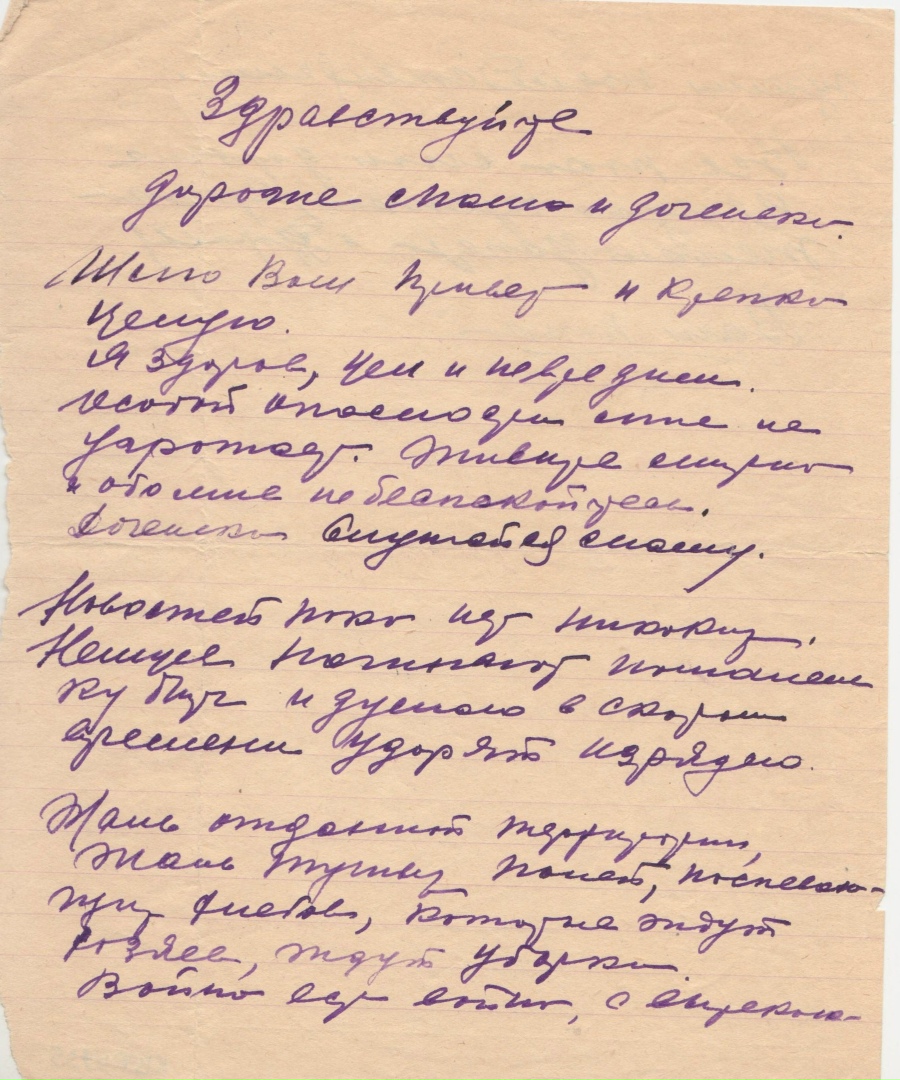 Здравствуйте
дорогие Маша и доченька.
Шлю Вам привет и крепко
целую.
Я здоров, цел и невредим.
Особой опасности мне не
угрожает. Живите смирно
и обо мне не беспакойтесь.
Доченька слушайся маму.
Новостей пока нет никаких.
Немцев начинают помалень
ку бить и думаю в скором
времени ударят изрядно.
Жаль отданной территории,
Жаль тучных полей, поспеваю-
щих хлебов, которые ждут
хозяев, ждут уборки.
Война есть война, с